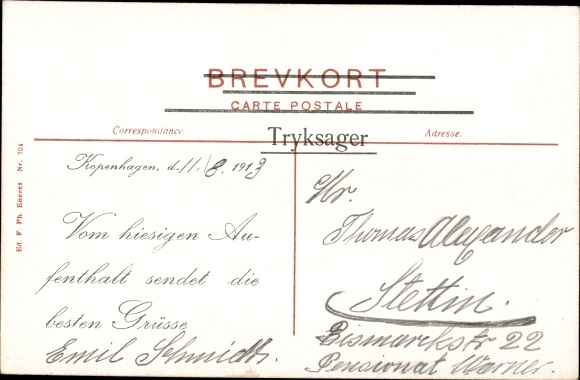 BREVKORT
CARTE POSTALE
Correspondance.
Tryksager
Adresse.
Ed. F. Ph. Eneret Nr. 704
Kopenhagen, d. 11./8. 1913
Vom hiesigen Au-
fenthalt sendet die
besten Grüsse
Emil Schmidt.
Hr.
Thomas Alexander
Stettin.
Bismarkstr 22
Pensionat Warner.